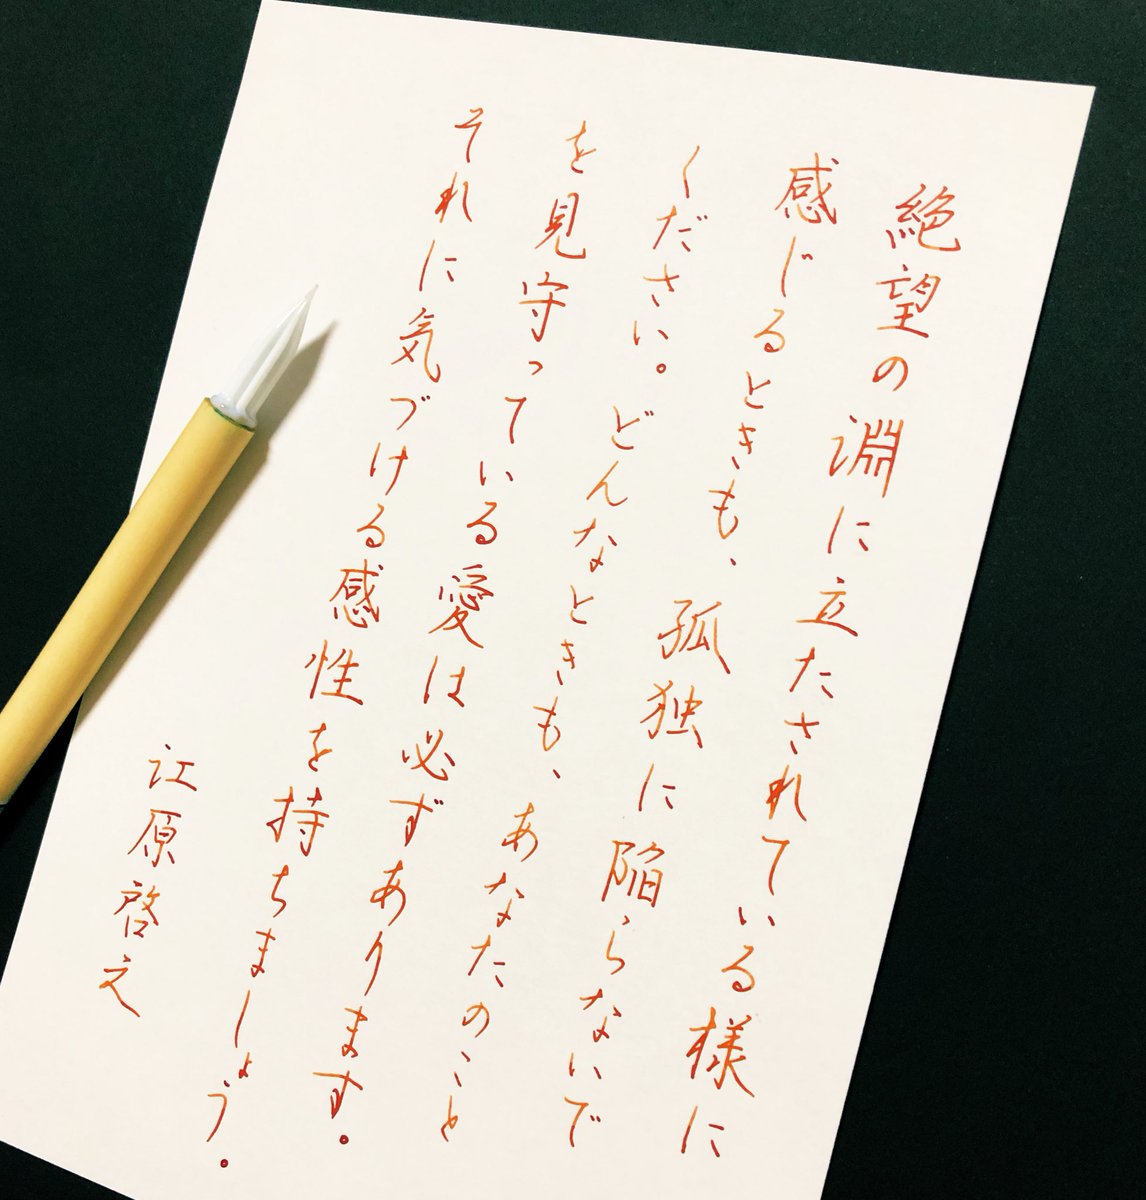 絶望の淵に立たされている様に
感じるときも、孤独に陥らないで
ください。どんなときも、あなたのこと
を見守っている愛は必ずあります。
それに気づける感性を持ちましょう。
江原啓之